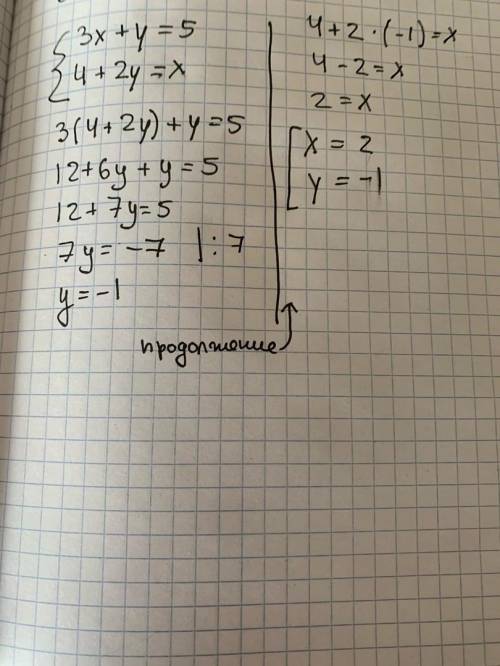 { 3x + y = 5
4 + 2y = x
3(4 + 2y) + y = 5
12 + 6y + y = 5
12 + 7y = 5
7y = -7 | : 7
y = -1
продолжение
4 + 2 · (-1) = x
4 - 2 = x
2 = x
[ x = 2
y = -1